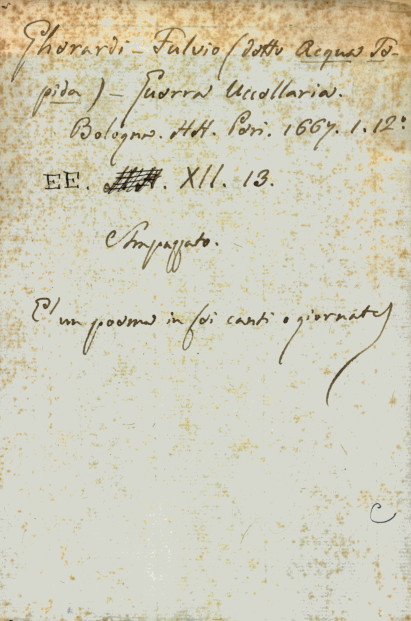 Gherardi - Fulvio (detto Acqua Te-
pida) - Guerra Uccellaria.
Bologna. HH. Pari. 1667. 1. 12°
EE. XII. 13.
Strapazzato.
E' un poema in sei canti o giornate
C